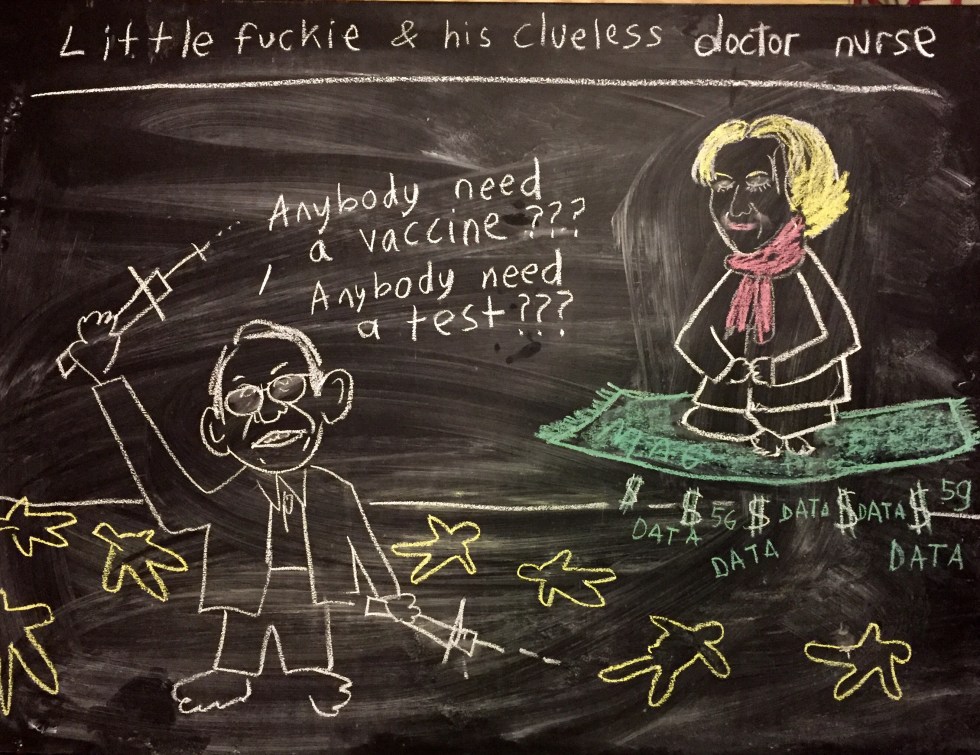 Little fuckie & his clueless doctor nurse
Anybody need
a vaccine ???
Anybody need
a test ???
$ $ 5G $ DATA $ DATA $ 5g
DATA DATA DATA